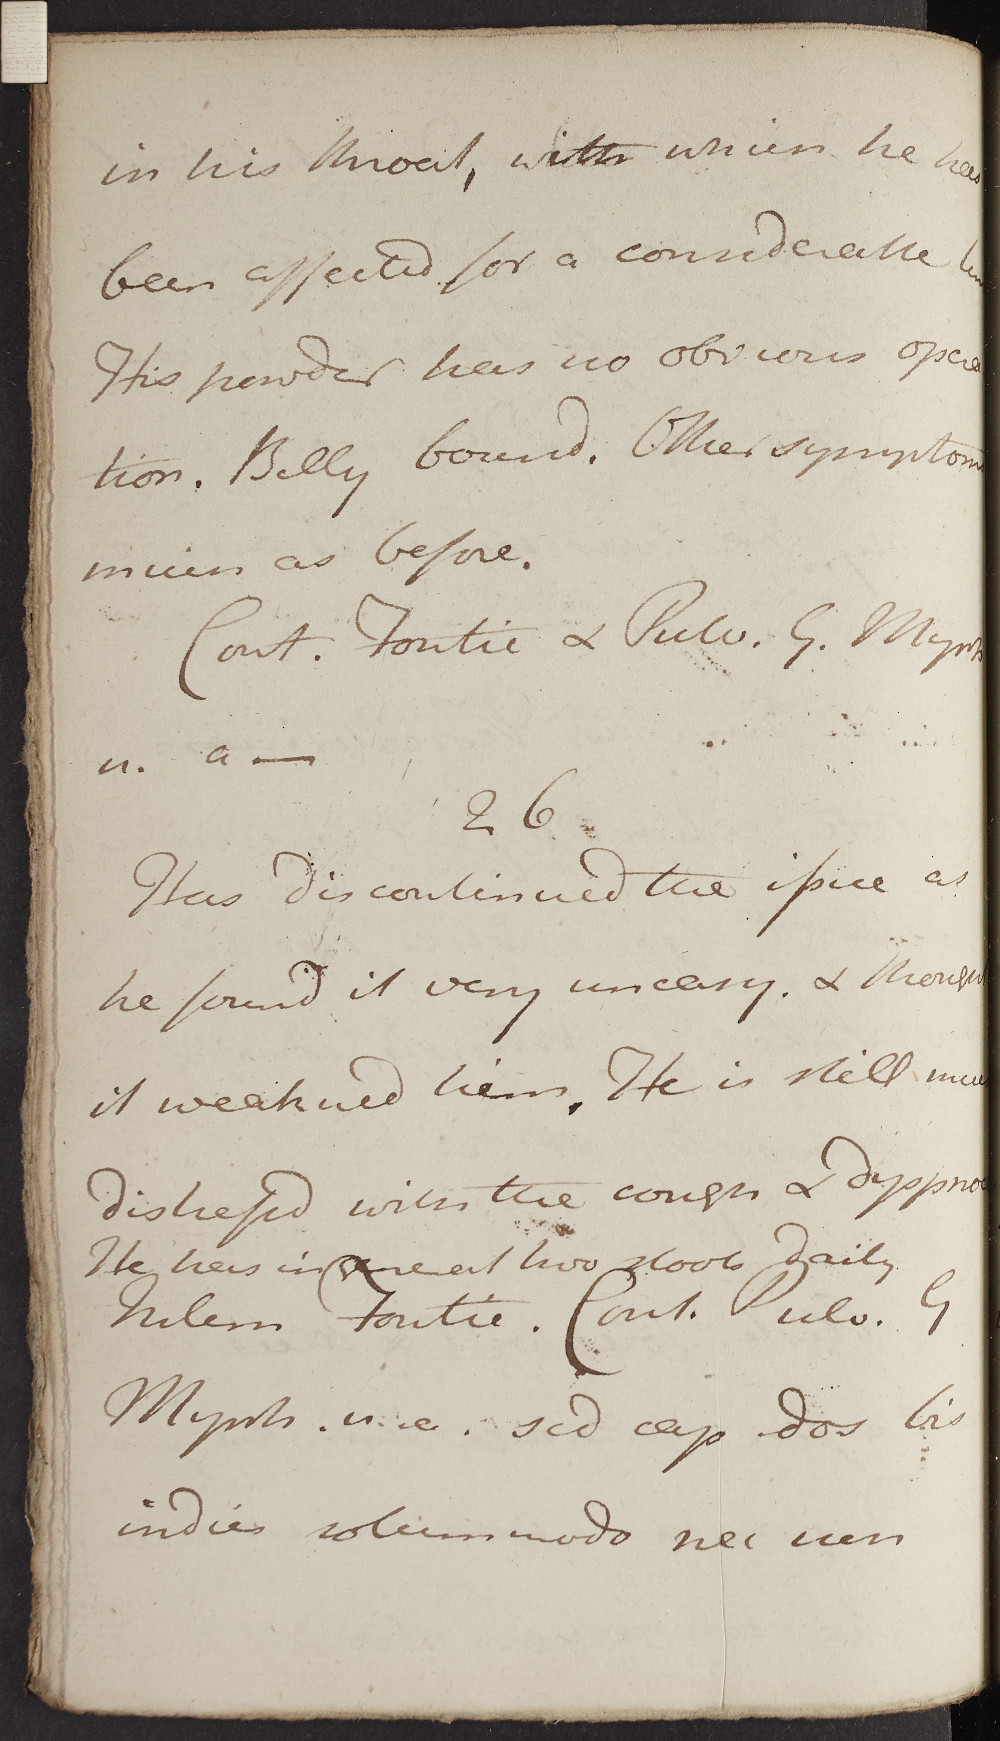 in his throat, with which he has
been affected for a considerable
His powder has no obvious opera
tion. Belly bound. Other symptoms
much as before.
Cont. Fontic & Pulv. G. Myrrh
u. a—
26
Has discontinued the issue as
he found it very uneasy. & thought
it weakned him. He is still much
distressd with the cough & dyspnoea
He has in general two stools daily
Fontic. Cont. Pulv. G
Myrrh. u. a. sed cap dos bis
indies solummodo nec non